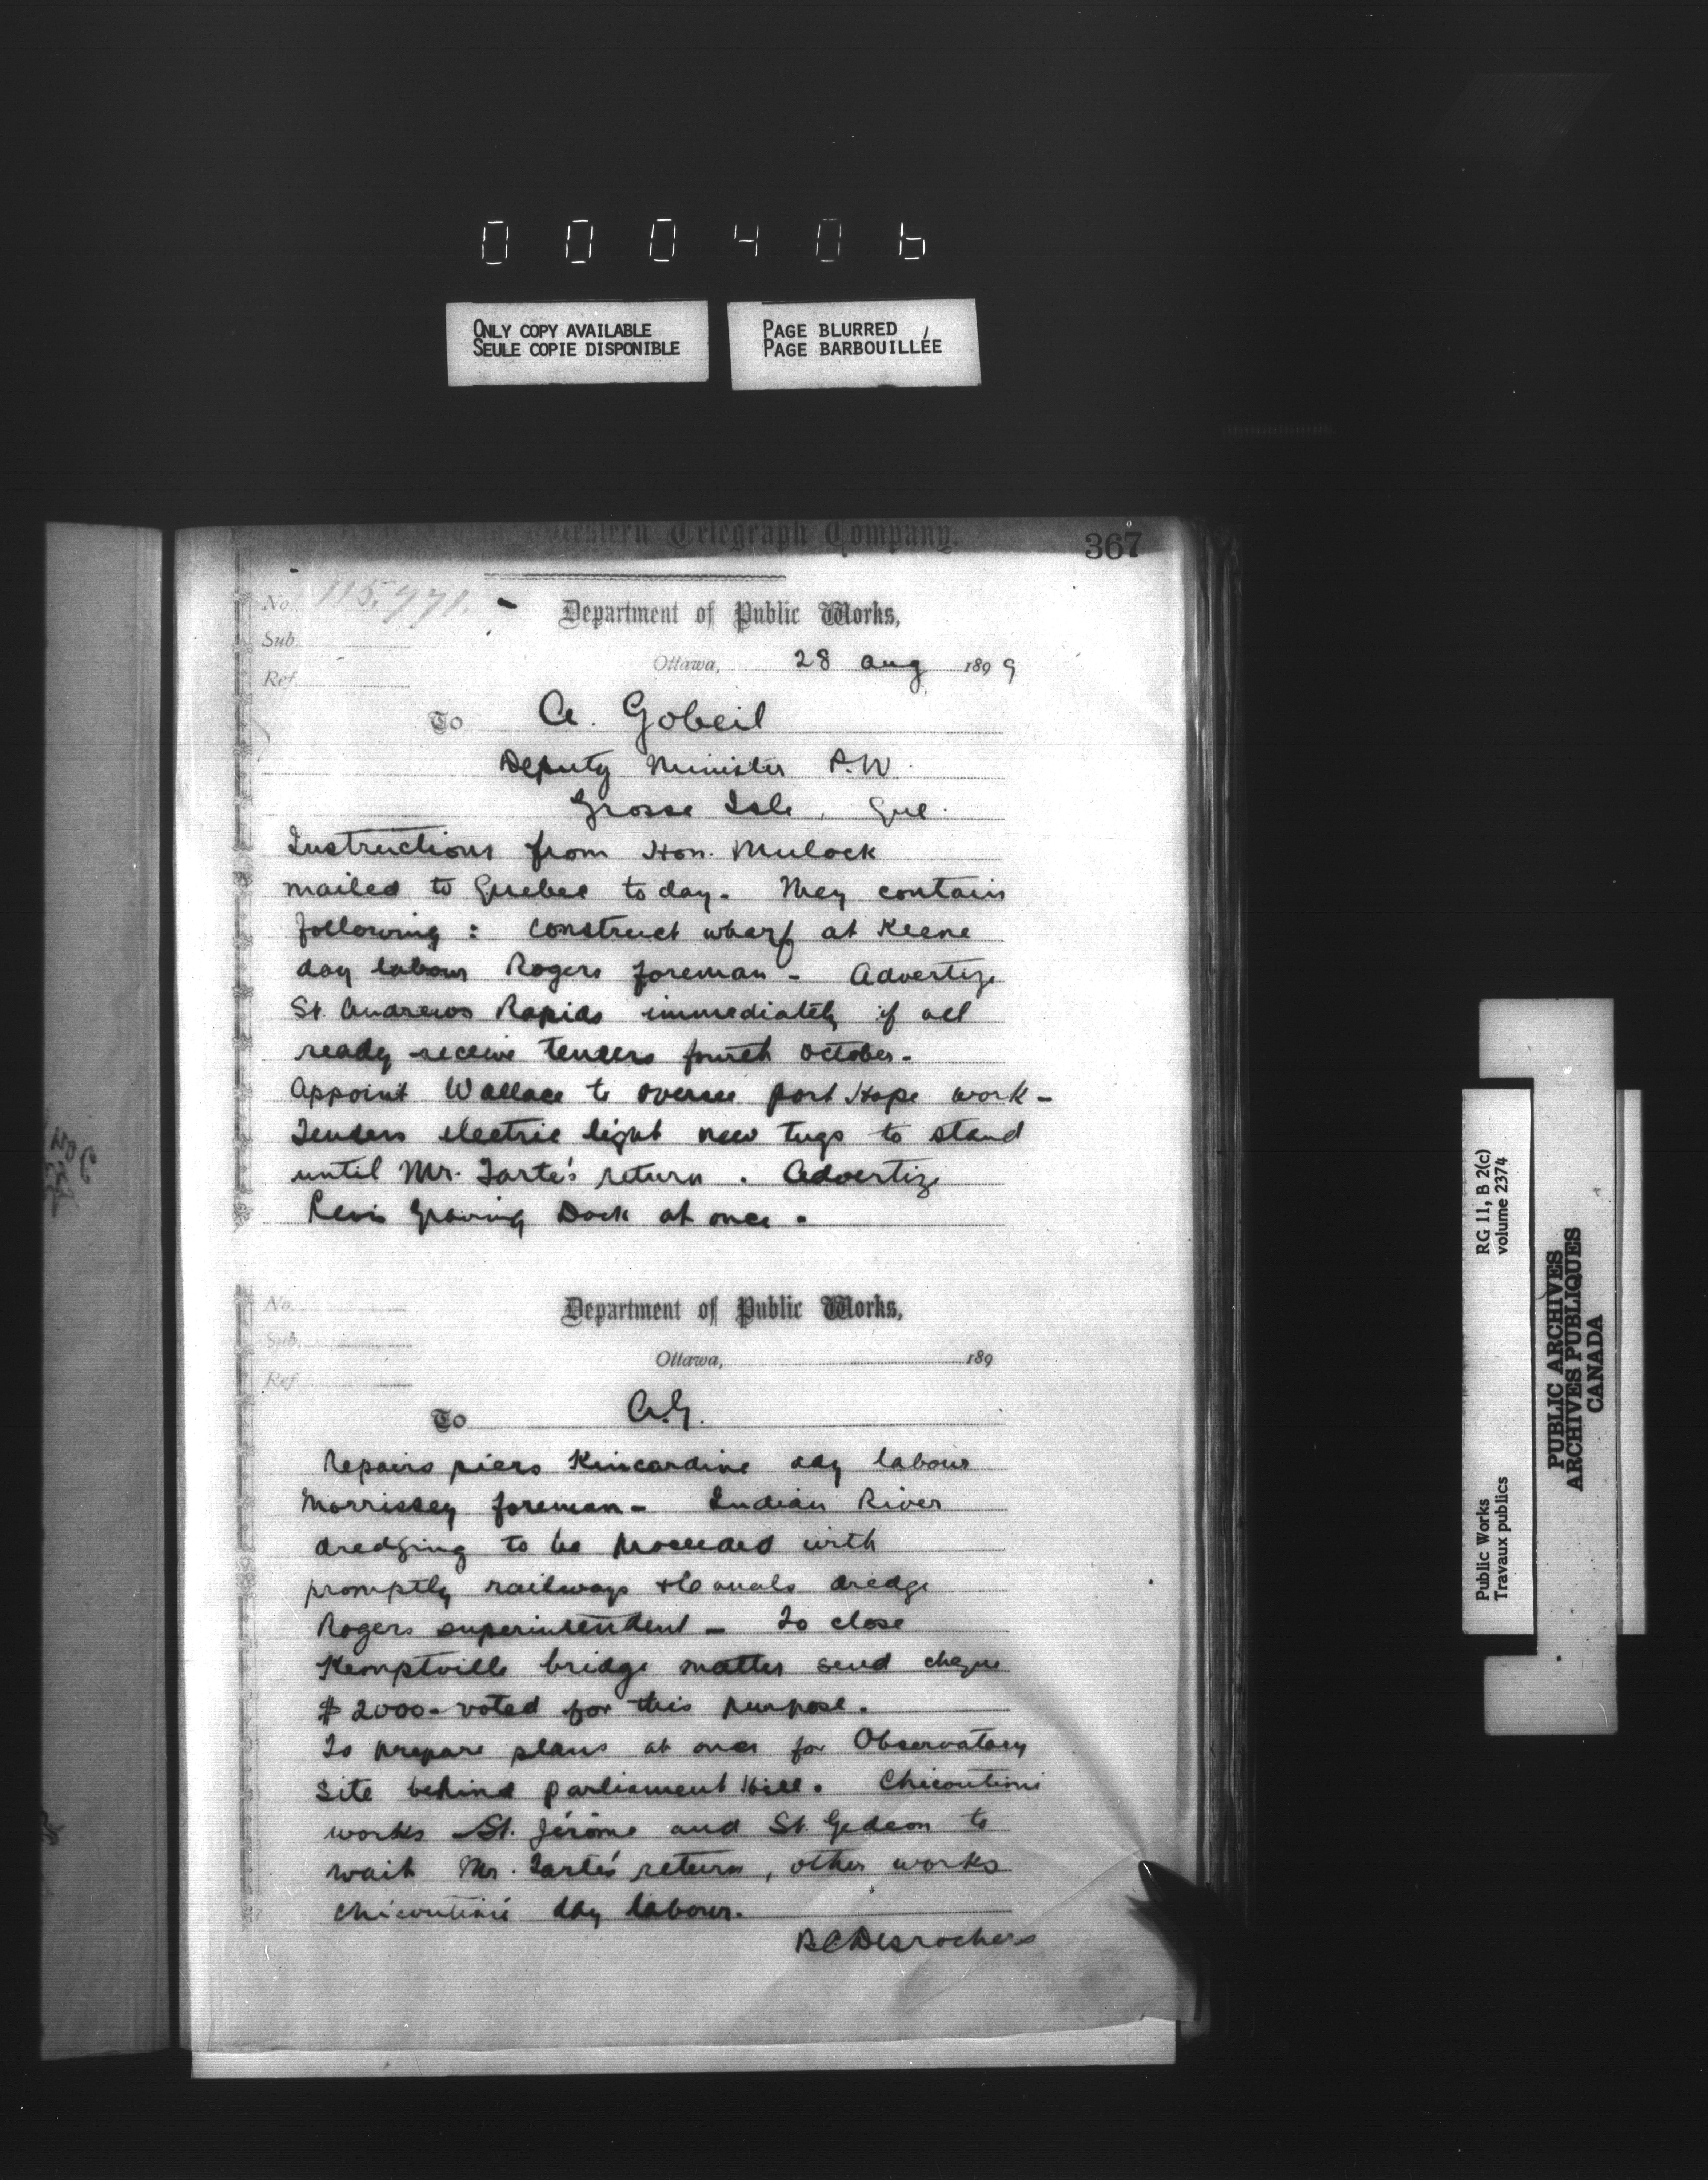 000406
ONLY COPY AVAILABLE
SEULE COPIE DISPONIBLE
PAGE BLURRED
PAGE BARBOUILLÉE
Western Telegraph Company.
367
No. 115,971.
Department of Public Works,
Sub.
Ottawa, 28 Aug 1899
Ref.
To A. Gobeil
Deputy Minister P.W.
Grosse Isle, Que.
Instructions from Hon. Mulock
mailed to Quebec to day. They contain
following : Construct wharf at Keene
day labour Rogers foreman - Advertize
St. Andrews Rapids immediately if all
ready receive tenders fourth October.
Appoint Wallace to oversee port Hope work -
Tenders electric light new tugs to stand
until Mr. Tarte's return . Advertize
Levis Graving Dock at once .
No.
Department of Public Works,
Sub.
Ottawa, 189
Ref.
To A.G.
Repairs piers Kincardine day labour
Morrissey foreman - Indian River
dredging to be proceeded with
promptly railways & Canals dredge
Rogers superintendent - To close
Kemptville bridge matter send cheque
$ 2000 - voted for this purpose.
To prepare plans at once for Observatory
site behind Parliament Hill. Chicoutimi
works St. Jérôme and St. Gedeon to
wait Mr. Tarte's return, other works
Chicoutimi day labour.
R.C. Desrochers
RG 11, B 2(c)
volume 2374
Public Works
Travaux publics
PUBLIC ARCHIVES
ARCHIVES PUBLIQUES
CANADA